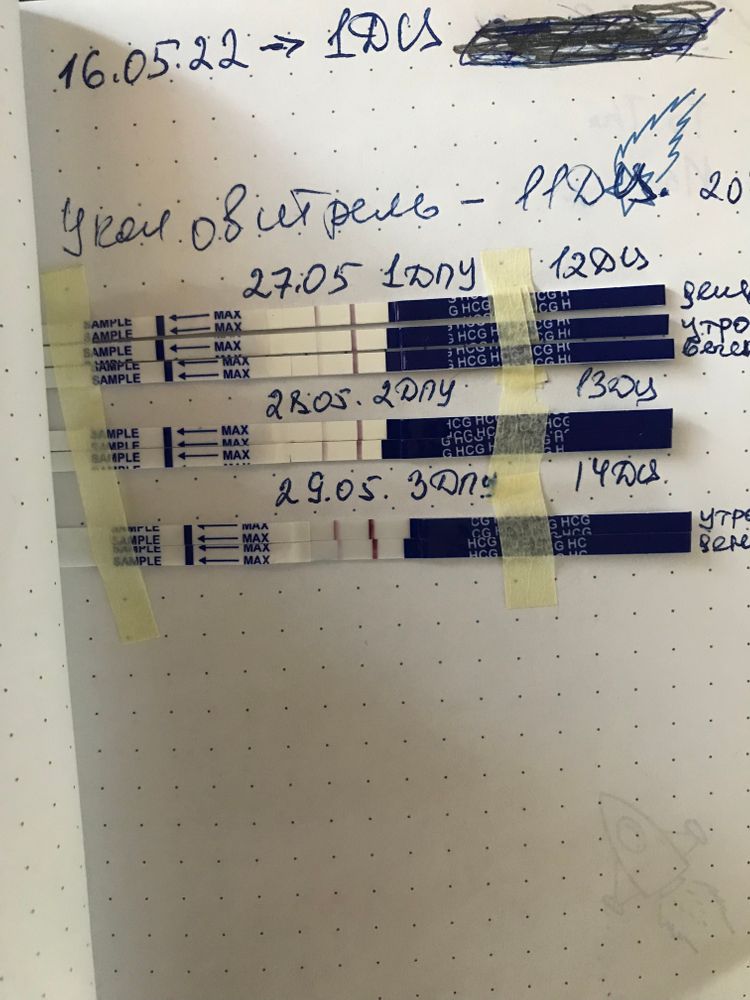 16.05.22 → 1ДЦ
Укол овитрель - 11ДЦ. 20
27.05 1ДПУ 12ДЦ
SAMPLE MAX G HCG HCG H
SAMPLE MAX G HCG HCG H утро
SAMPLE MAX G HCG HCG H
SAMPLE MAX
28.05. 2ДПУ 13ДЦ
SAMPLE MAX HCG HC HCG
SAMPLE MAX
SAMPLE MAX G HCG HCG
29.05. 3ДПУ 14ДЦ
SAMPLE MAX CG HCG G HCG утро
SAMPLE MAX HCG HC
SAMPLE MAX HCG G HC